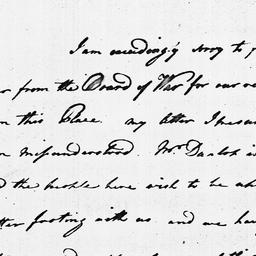 I am exceedingly sorry to
from the Board of War for our
this Place. my letter I
misunderstood. Mr. Dunlop is
the people here wish to be
footing with us and we